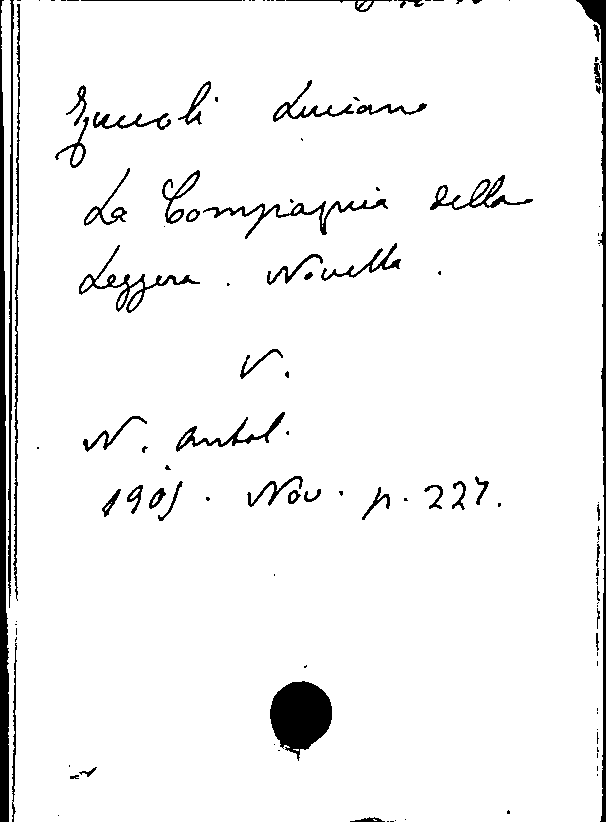 Zuccoli Luciano
La Compagnia della
Leggera. Novella.
V.
N. Antol.
1905. Nov. p. 227.